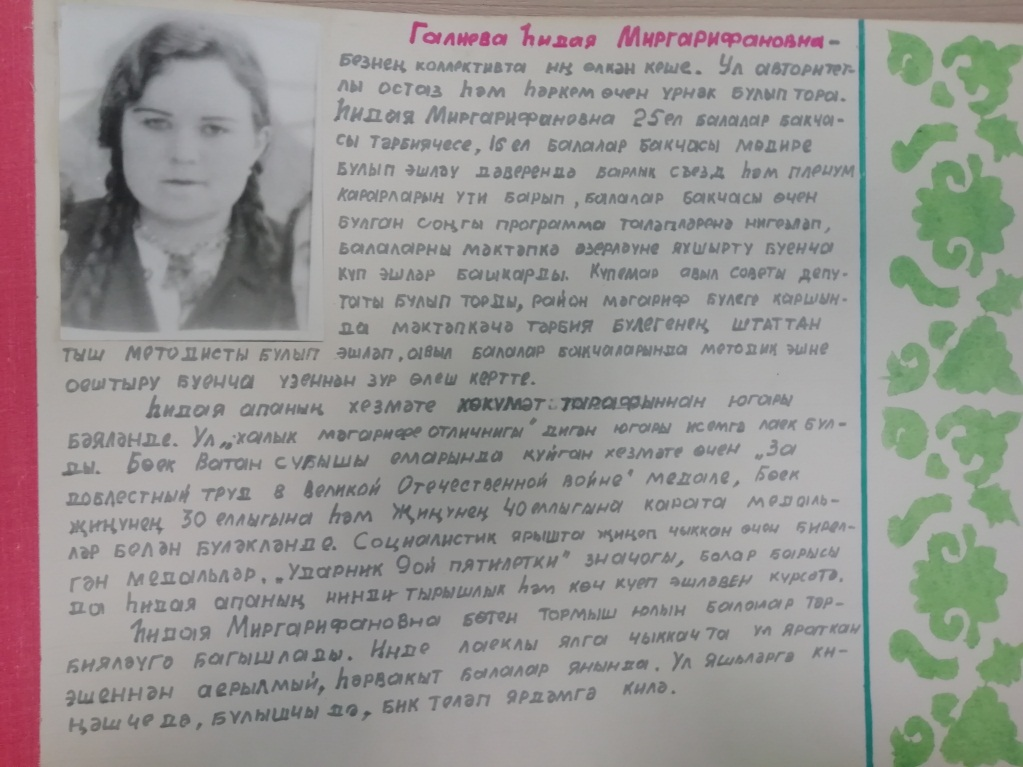 Галиева Һидая Миргарифановна-
безнең коллективта иң өлкән кеше. Ул авторитет-
лы остаз һәм һәркем өчен үрнәк булып тора.
Һидая Миргарифановна 25 ел балалар бакча-
сы тәрбиячесе, 16 ел балалар бакчасы мөдире
булып эшләү дәверендә барлык съезд һәм пленум
карарларын үти барып, балалар бакчасы өчен
булган соңгы программа таләпләренә нигезләп,
балаларны мәктәпкә әзерләүне яхшырту буенча
күп эшләр башкарды. Күпемар авыл советы депу-
таты булып торды, район мәгариф бүлеге каршын-
да мәктәпкәчә тәрбия бүлегенең штаттан
тыш методисты булып эшләп, авыл балалар бакчаларында методик эшне
оештыру буенча үзеннән зур өлеш кертте.
Һидая апаның хезмәте хөкүмәт тарафыннан югары
бәяләнде. Ул „халык мәгарифе отличнигы" дигән югары исемгә лаек бул-
ды. Бөек Ватан сугышы елларында куйган хезмәте өчен „За
доблестный труд в Великой Отечественной войне" медале, Бөек
җиңүнең 30 еллыгына һәм Җиңүнең 40 еллыгына карата медаль-
ләр белән бүләкләнде. Социалистик ярышта җиңеп чыккан өчен бирел-
гән медальләр, „Ударник 9ой пятилетки" значогы, болар барысы
да Һидая апаның нинди тырышлык һәм көч куеп эшләвен күрсәтә.
Һидая Миргарифановна бөтен тормыш юлын балалар тәр-
бияләүгә багышлады. Инде лаеклы ялга чыккач та ул яраткан
эшеннән аерылмый, һәрвакыт балалар янында. Ул яшьләргә ки-
ңәшче дә, булышчы дә, бик теләп ярдәмгә килә.